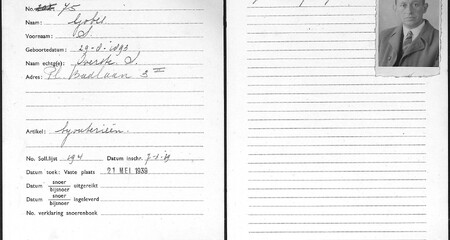 No. 75
Naam: Gobes
Voornaam: S.
Geboortedatum: 29-8-1899
Naam echtg(e):
Adres: Pl. Badlaan 3
Artikel: bijouterieën.
No. Soll.lijst 194 Datum inschr. 7-1-39
Datum zoek: Vaste plaats 27 MEI 1939
Datum snoer / bijsnoer uitgereikt
Datum snoer / bijsnoer ingeleverd
No. verklaring snoerenboek